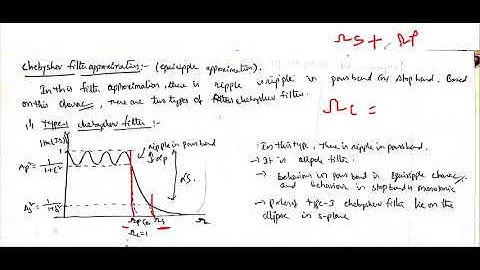 Ωs + Ωp
Chebyshev filter approximation:- (equiripple approximation).
In this filter approximation, there is ripple in passband or stop band. Based
on this there are two types of chebyshev filter.
Ωc =
1) Type-1 chebyshev filter:-
|H(jΩ)|
1
ripple in pass band
αp
Ap² = 1/(1+ε²)
αs
As² = 1/(1+δ²)
Ωp Ωs Ω
Ωc=1
In this type, there is ripple in pass band.
→ It is allpole filter.
→ behaviour in pass band is equiripple
and behaviour in stopband is monotonic
→ poles of type-I chebyshev filter lie on the
ellipse in s-plane